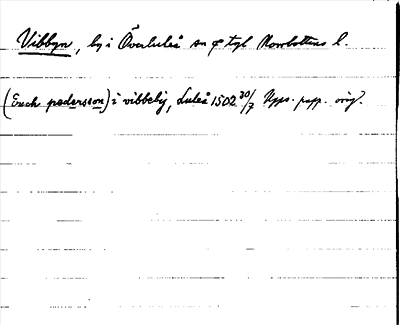 Vibbyn, by i Överluleå sn o tgl Norrbottens l.
(Erich pedersson) i vibbeby, Luleå 1502 30/7 Upps. papp. orig.